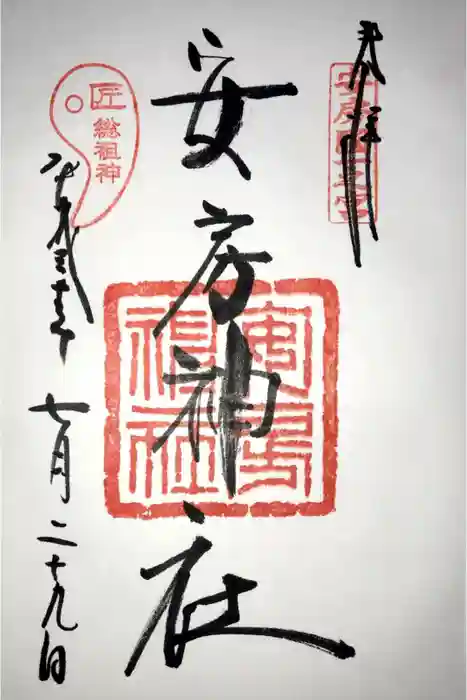 奉拝
安房国一之宮
安房神社
安房神社
匠総祖神
平成三十年
七月二十九日